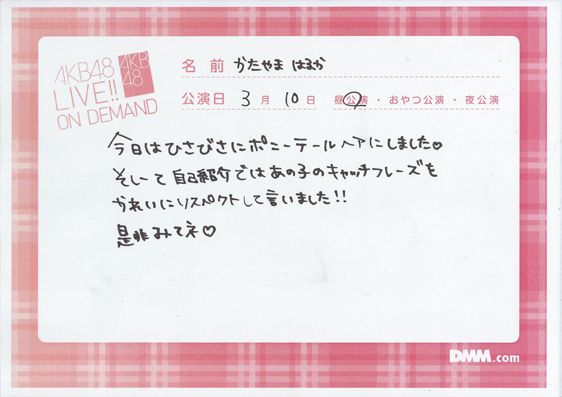 AKB48
LIVE!!
ON DEMAND
AKB
48
名前 かたやま はるか
公演日 3月10日 昼公演・おやつ公演・夜公演
今日はひさびさにポニーテールヘアにしました♡
そして自己紹介ではあの子のキャッチフレーズを
かれいにリスペクトして言いました!!
是非みてネ♡
DMM.com